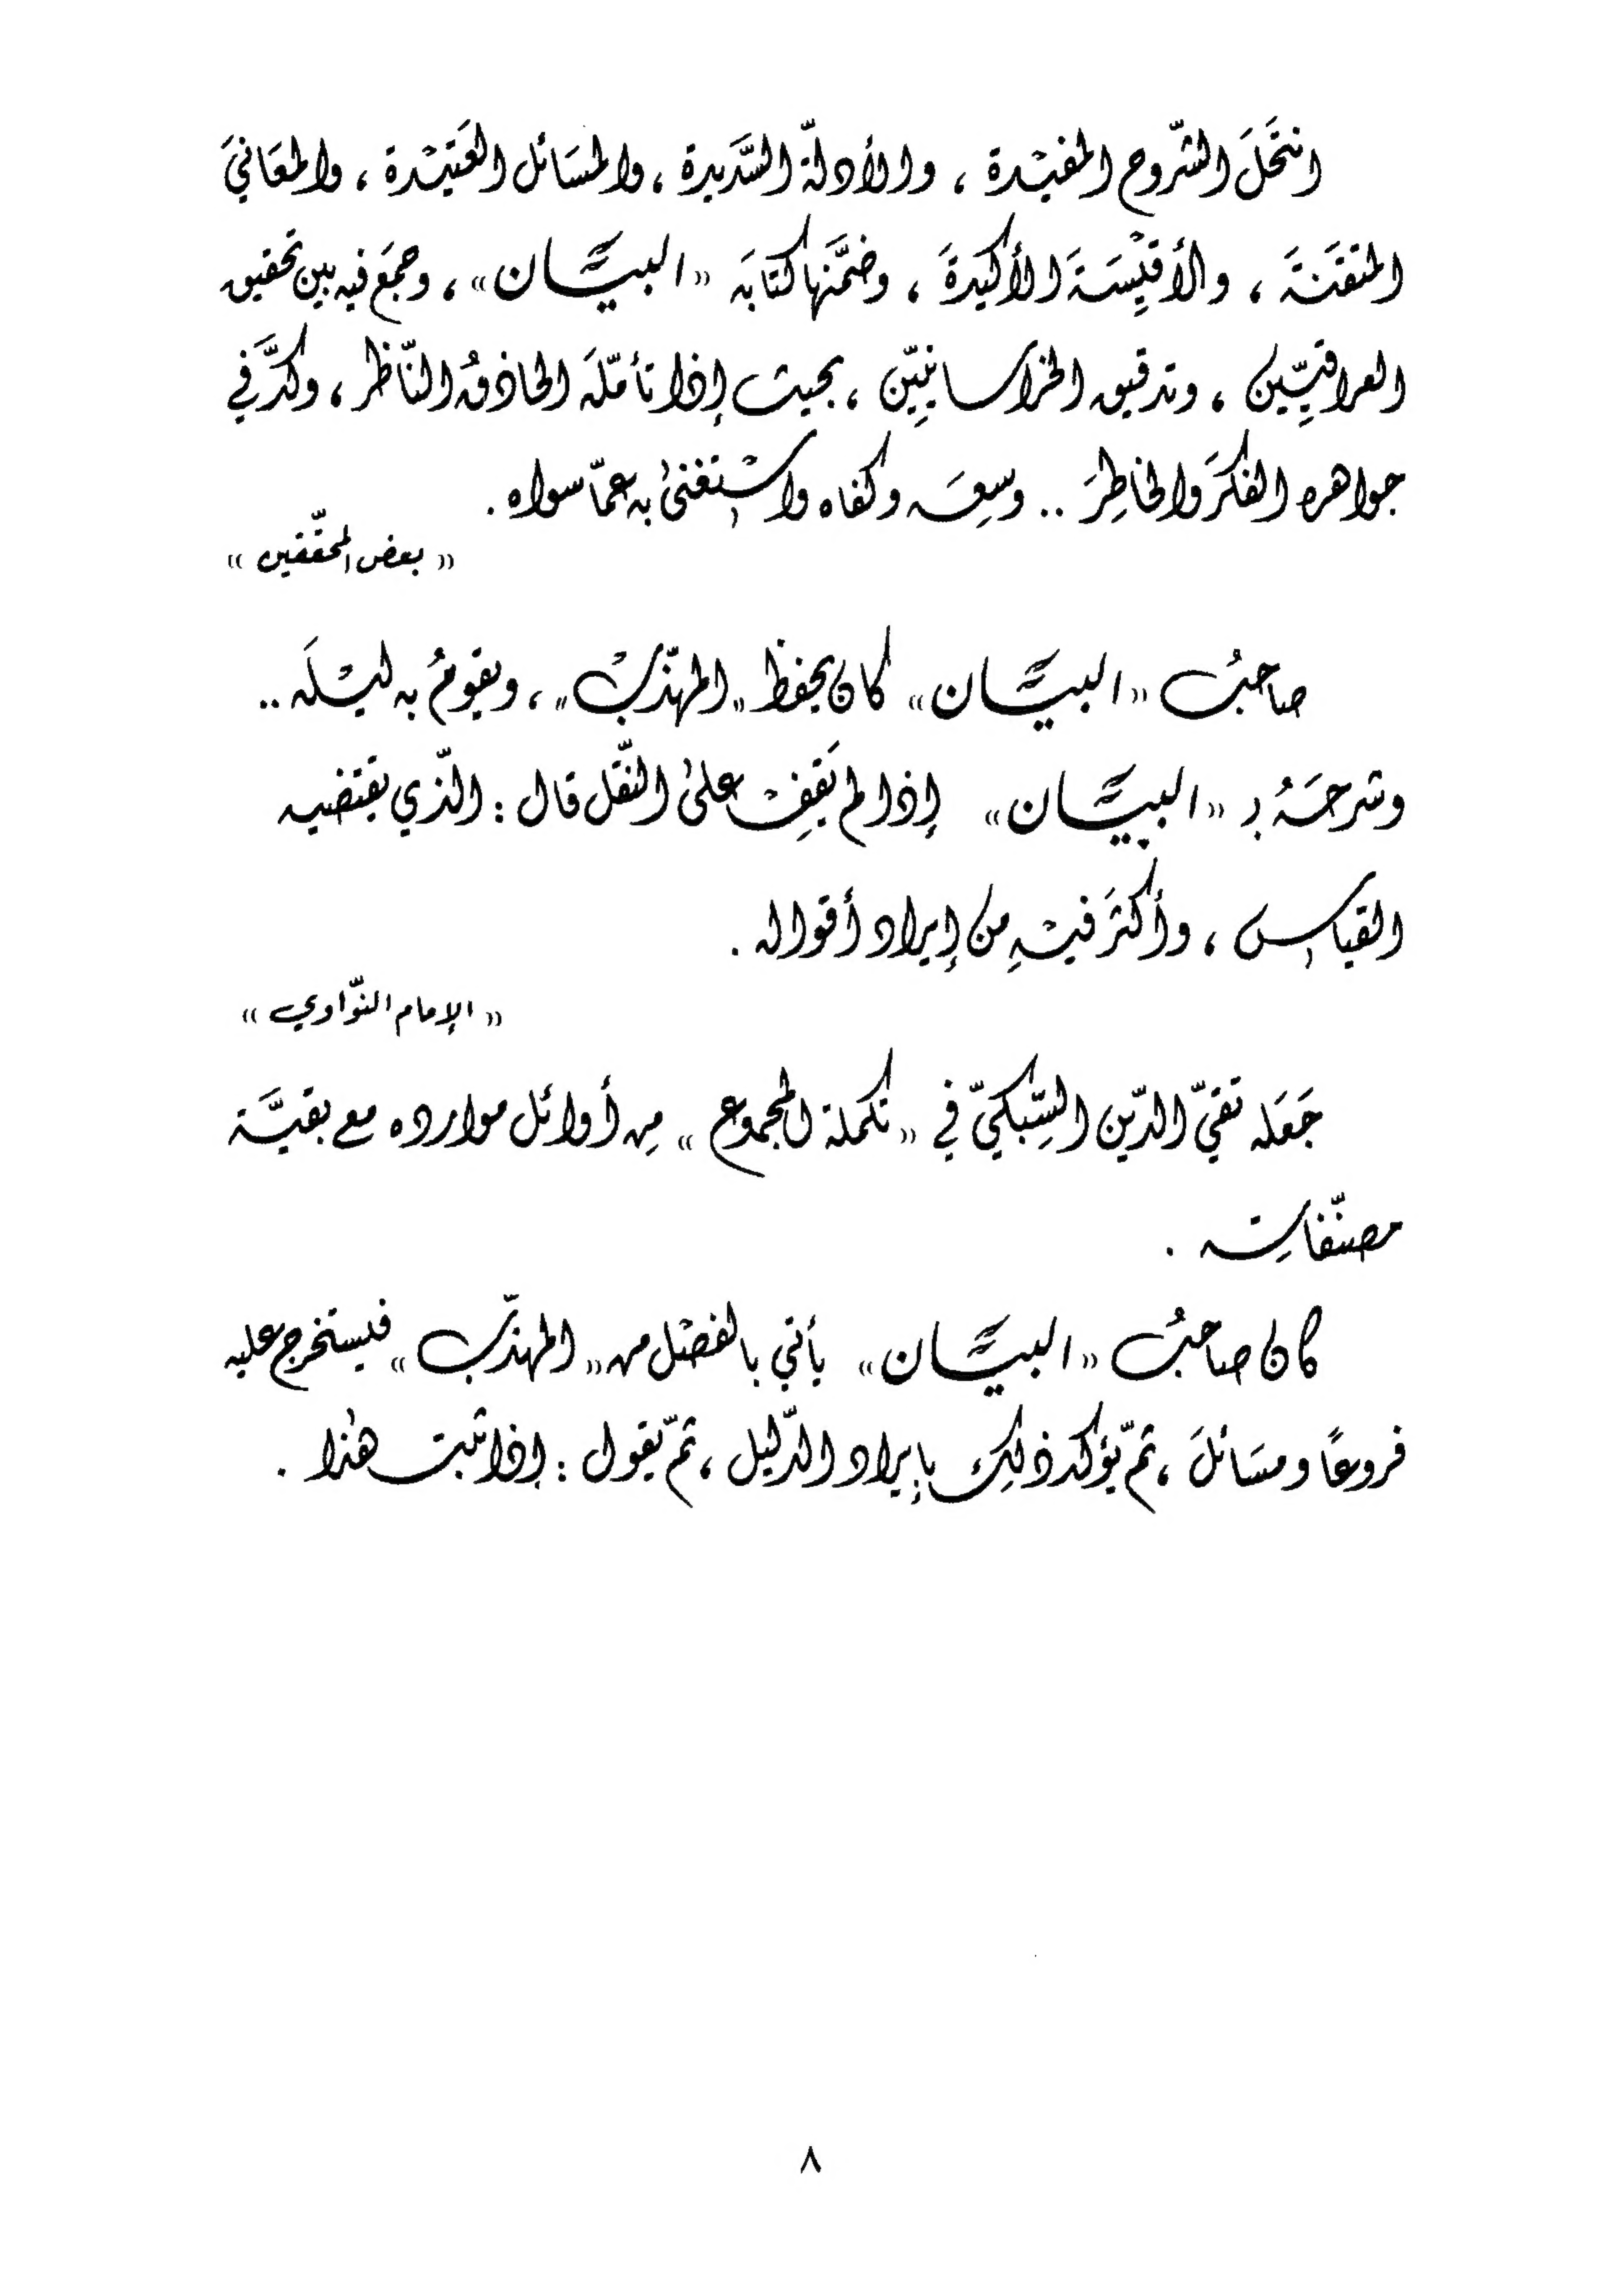 انتَخَلَ الشّروح المفيْدة ، والأدلّة السَّديرة ، والمسَائل العَتيْدة ، والمعَانيَ
المتقَنةَ ، والأقيِسَةَ الأكيَدةَ ، وضمَّنها كتابَه «البيَان» ، وجمَع فيه بين تحقيق
العراقيِّين ، وتدقيق الخراسانيِّين ، بحيث إذا تأمّلَه الحاذقُ النّاظر ، وكدَّ في
جواهره الفكَر والخاطِرَ .. وسِعَه وكفاه واسْتغنىٰ به عمّا سواه .
« بعض المحقّقين »
صاحبُ «البيَان» كان يحفظ «المهذّبْ» ، ويقومُ به ليْلَه ..
وشرحَهُ بـ «البيَان» إذا لم يَقِفْ علىٰ النّقل قال : الّذي يقتضيه
القياس ، وأكثَر فيْهِ من إيراد أقواله .
« الإمام النوّاوي »
جَعَله تقيّ الدّين السِّبكيّ في «تكملة المجموع» مِن أوائل موارده مع بقيَّة
مصنّفاتِه .
كان صاحبُ «البيَان» يأتي بالفصْل من «المهذّب» فيستخرج عليه
فروعًا ومسَائلَ ، ثمّ يؤكد ذلِك بإيراد الدّليل ، ثمّ يقول : إذا ثبت هٰذا .
٨